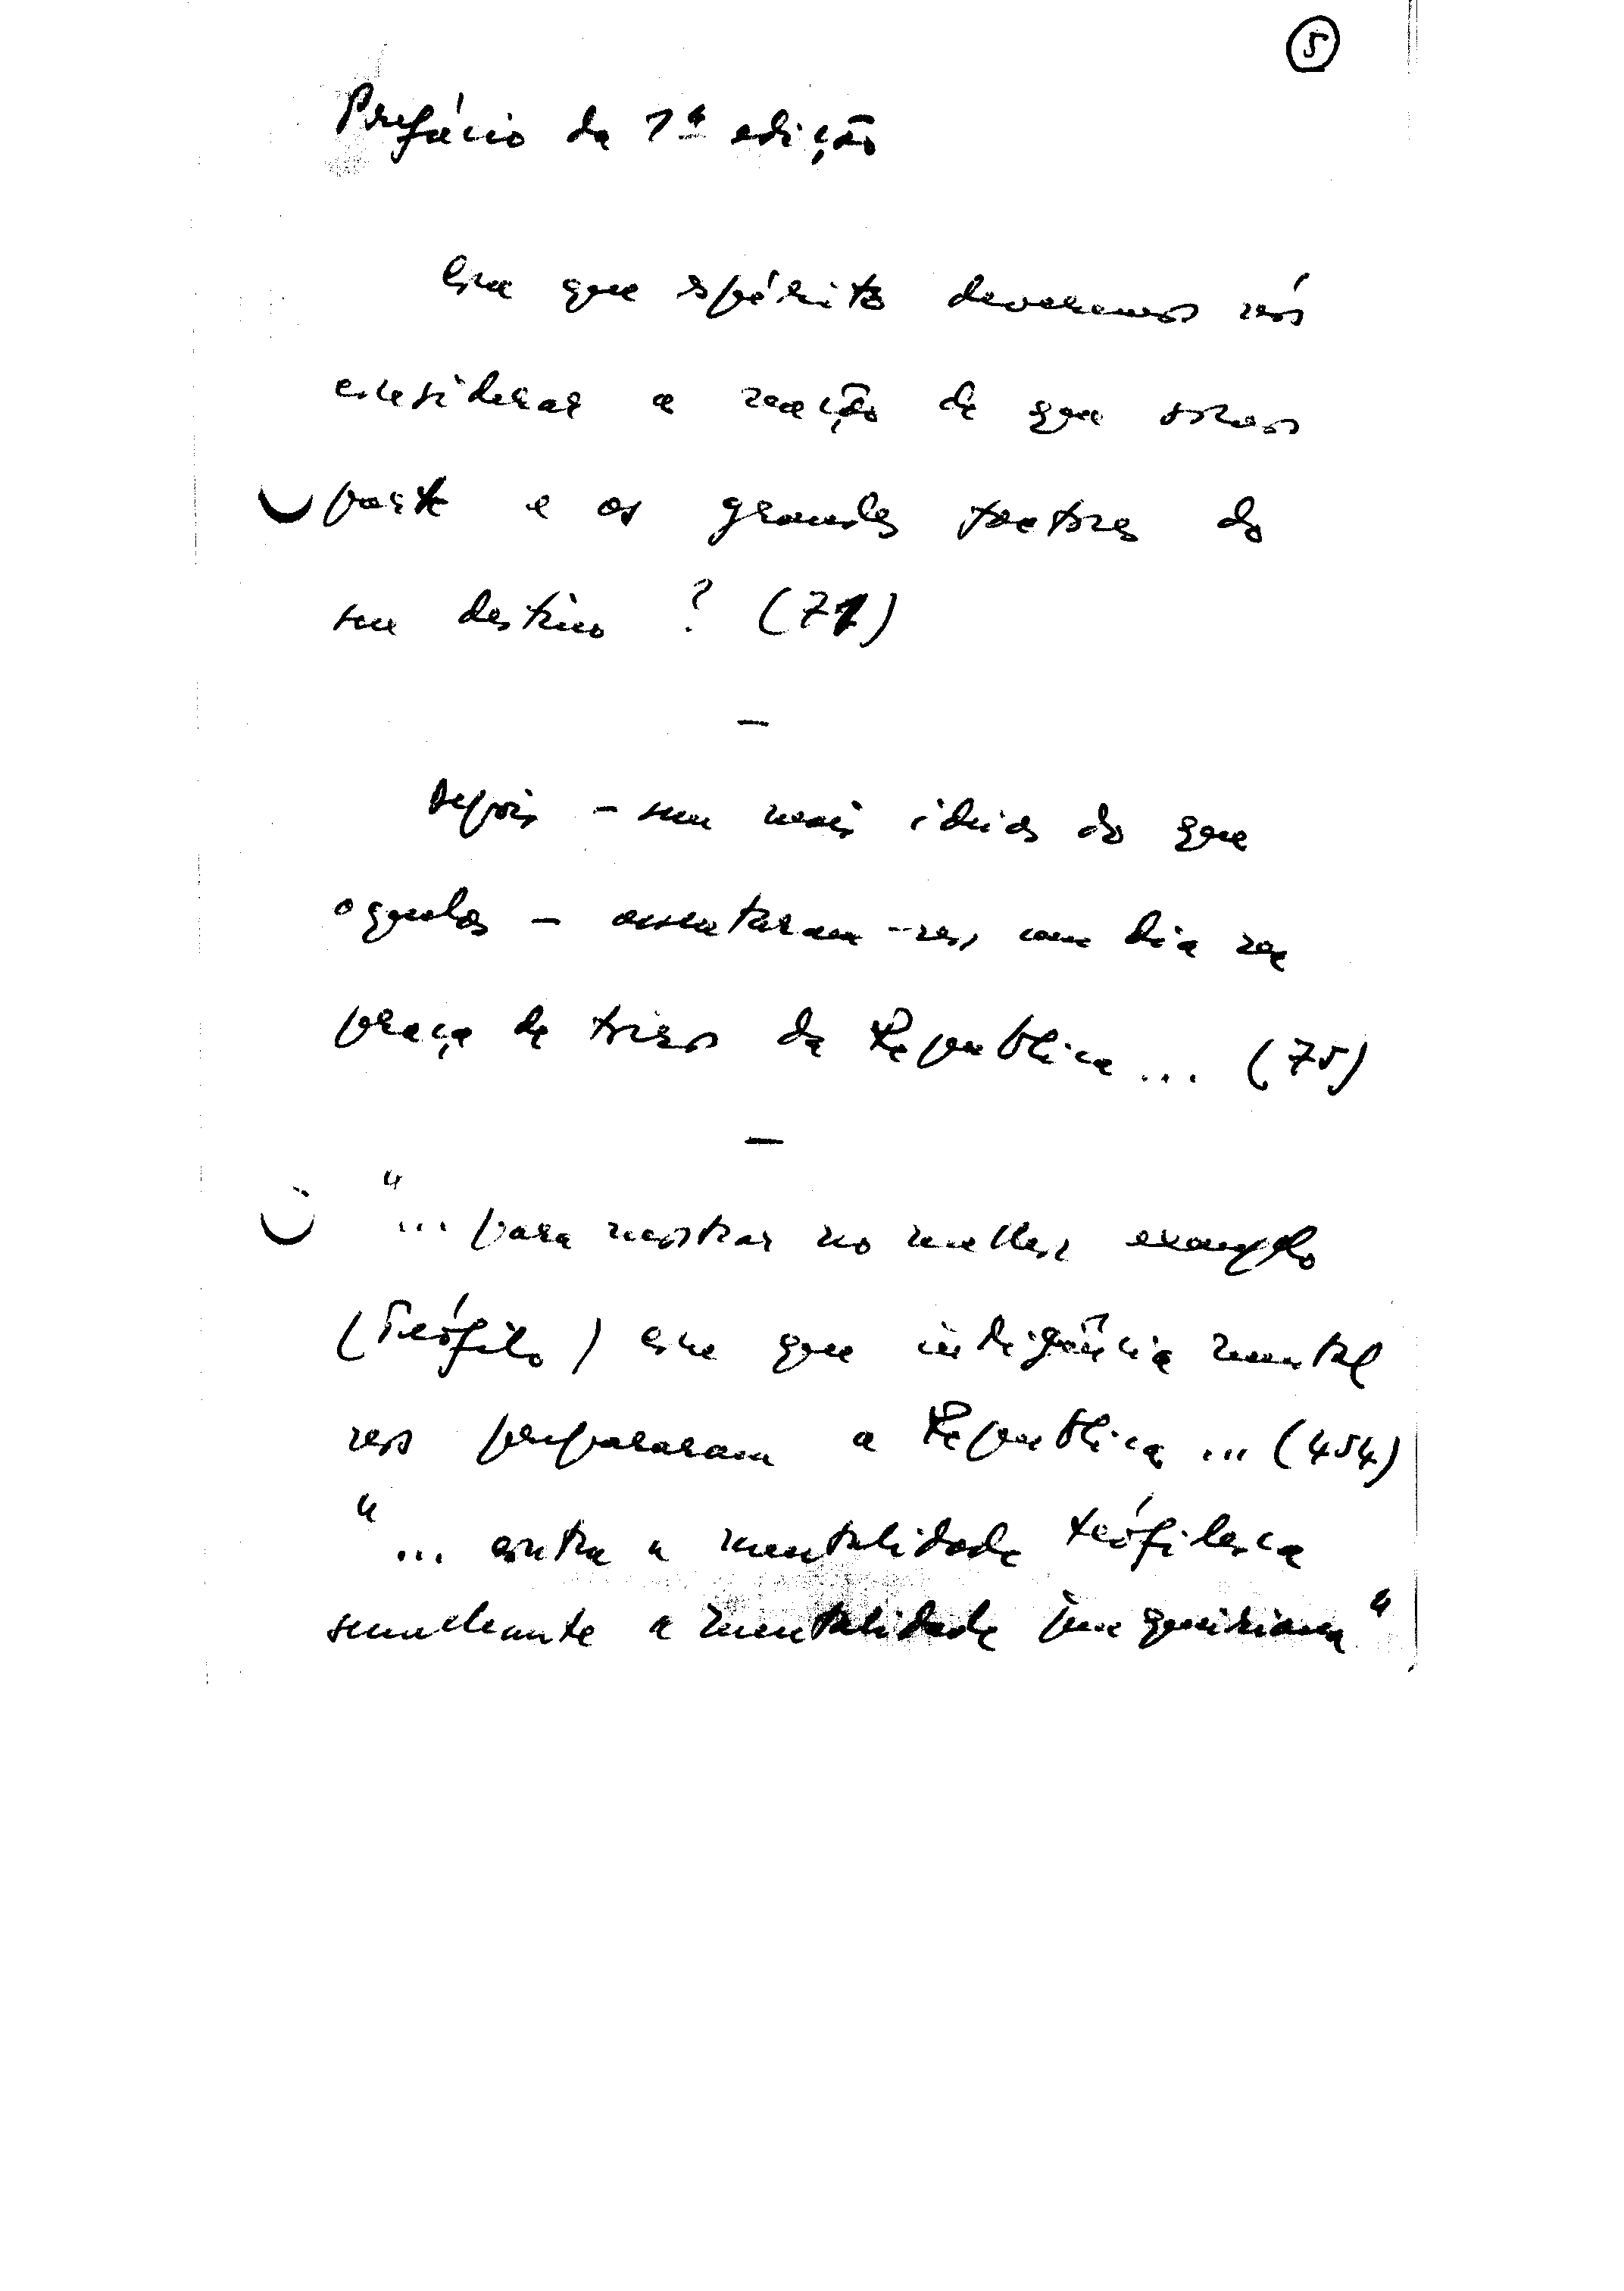 5
Prefácio da 1ª edição
Com que espírito devemos nós
considerar a nação de que somos
parte e os grandes factores do
seu destino ? (71)
—
Depois – sem mais ideias do que
aquelas – assentaram-nos, um dia na
praça de toiros da República ... (75)
—
"... para mostrar no melhor exemplo
(Teófilo) com que indigência mental
nos prepararam a República ... (454)
"... contra a mentalidade teófilesca
semelhante a mentalidade junqueiriana"